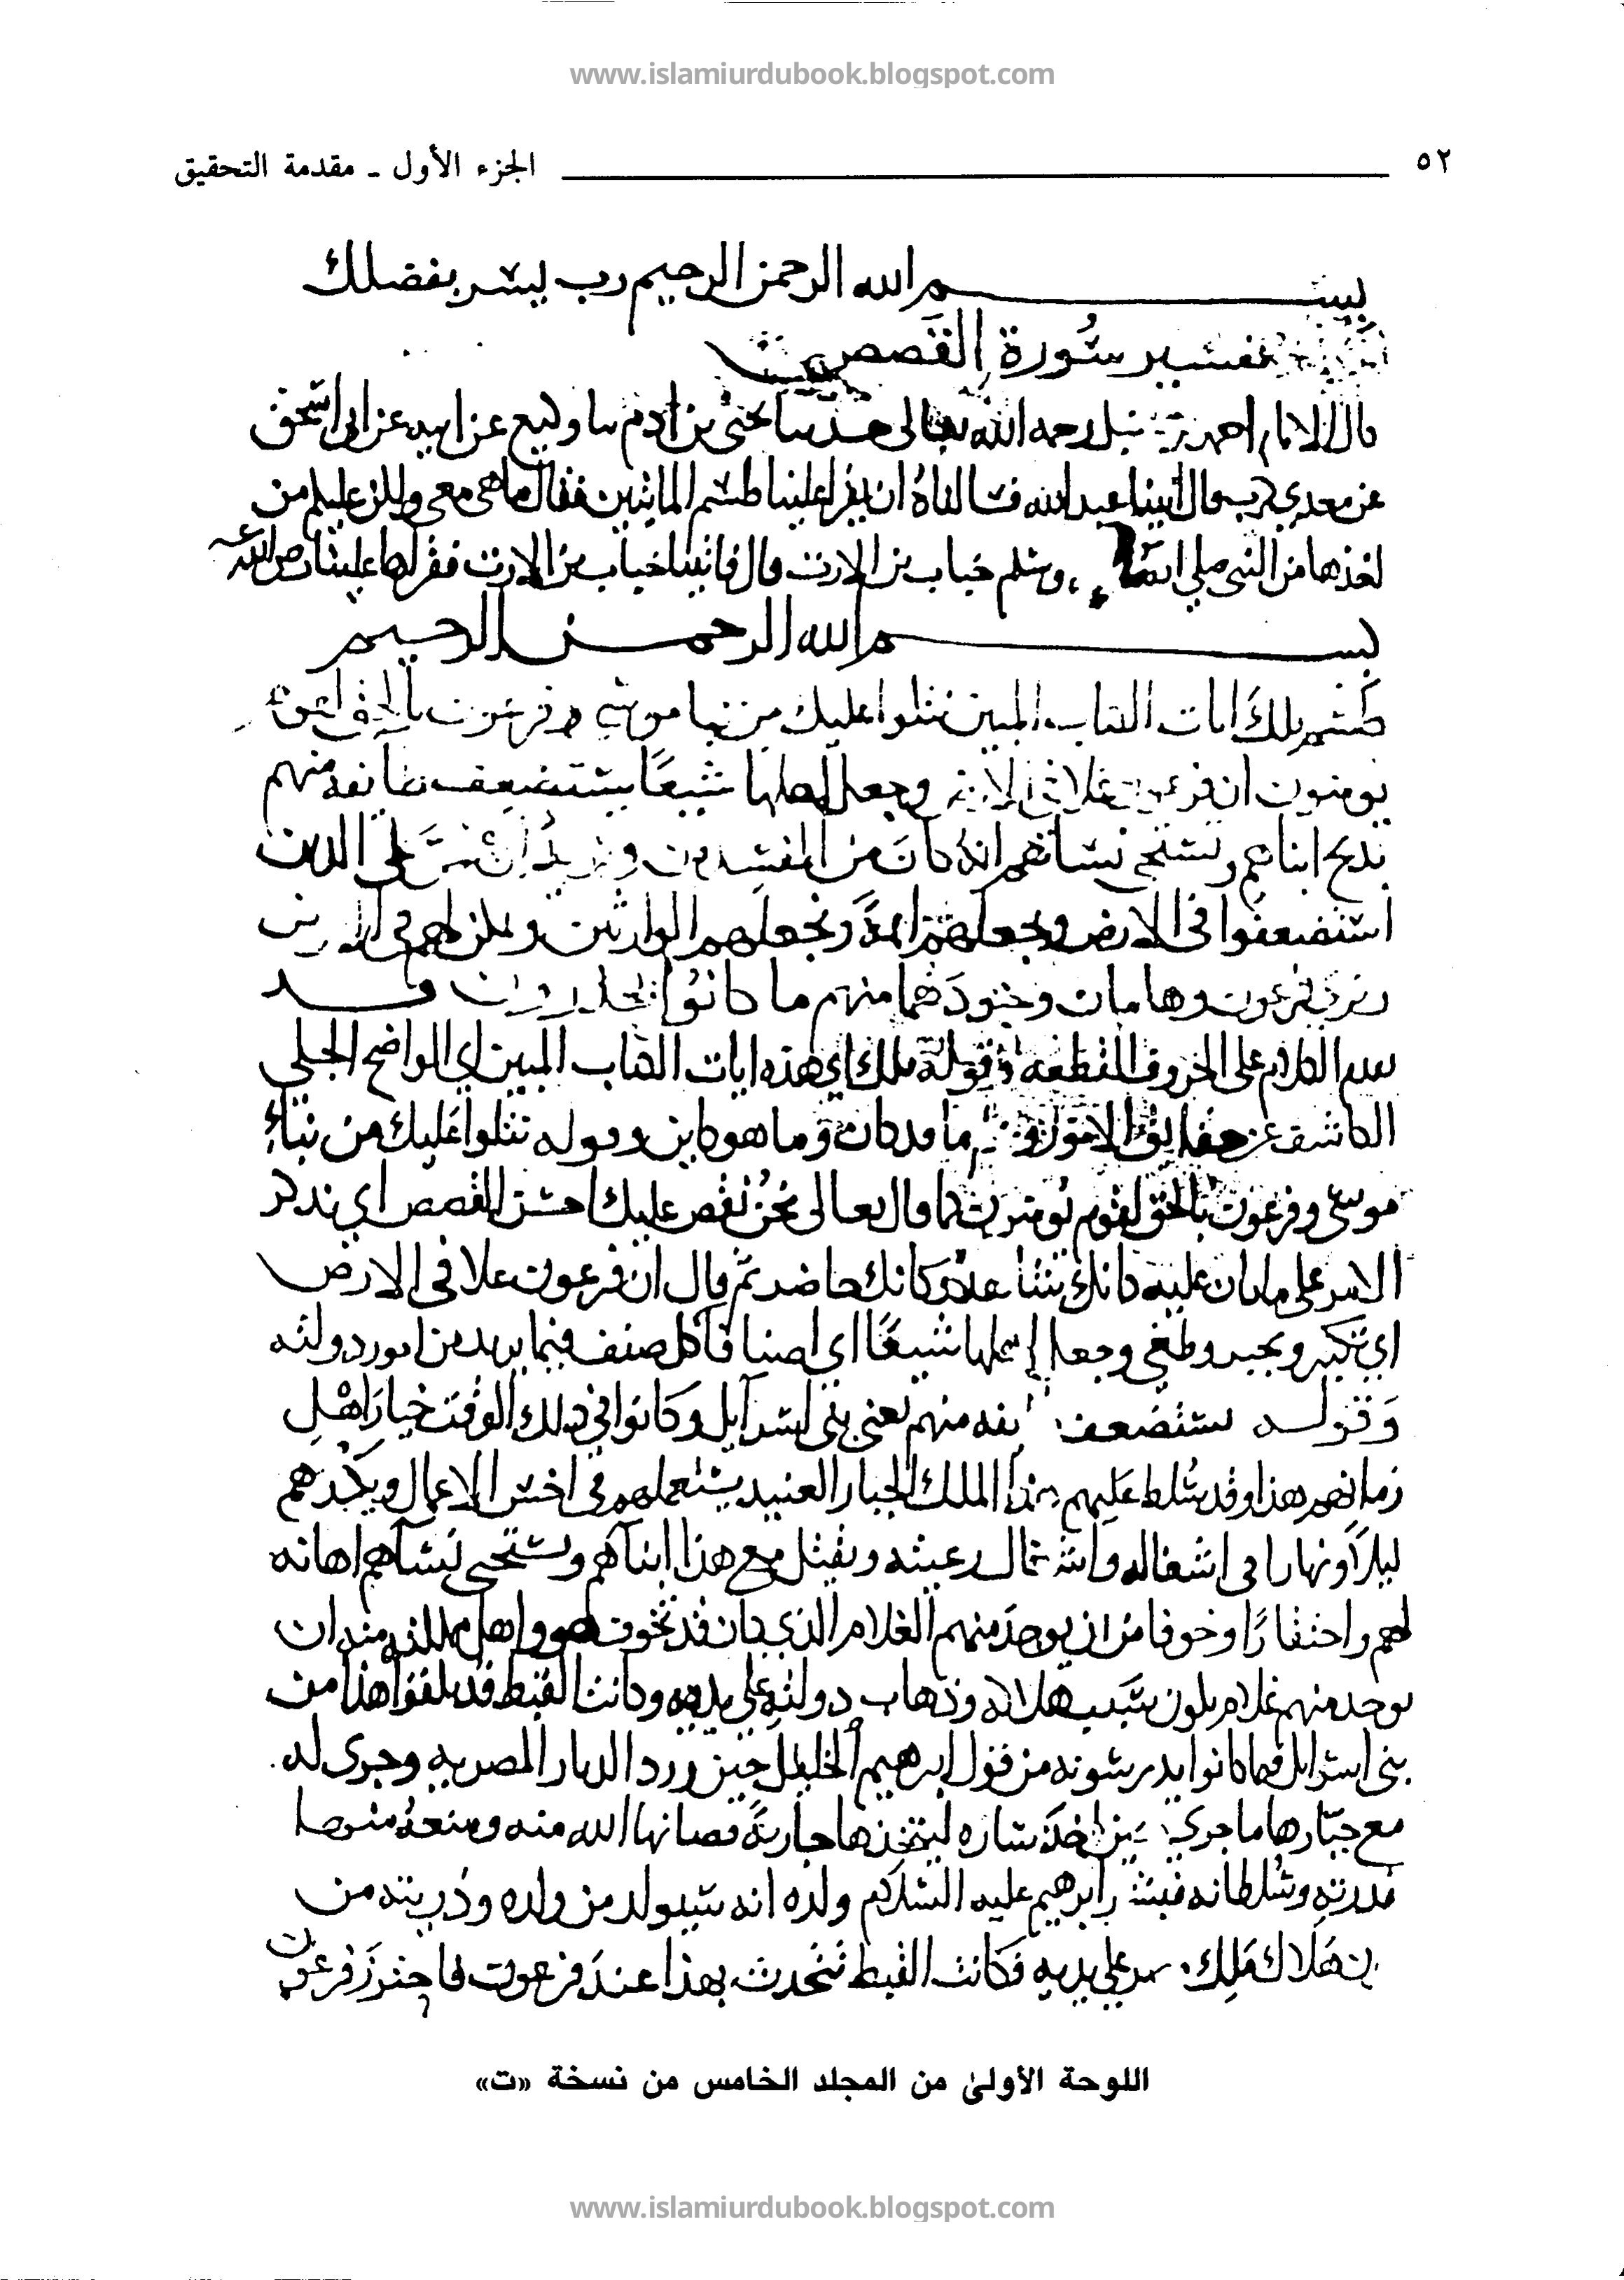 www.islamiurdubook.blogspot.com
٥٢
الجزء الأول ـ مقدمة التحقيق
بسم الله الرحمن الرحيم رب يسر بفضلك
تفسير سورة القصص
قال الامام احمد بن حنبل رحمه الله تعالى حدثنا يحيى بن ادم سا وكيع عن ابيه عن ابى اسحق
عن معدي كرب قال اتينا عبد الله فسالناه ان يقرا عليا طسم المايتين فقال ما هى معى ولكن عليكم من
اخذها من النبى صلى الله وسلم خباب بن الارت قال فاتينا خباب بن الارت فقراها علينا رضى الله عنه
بسم الله الرحمن الرحيم
طسم تلك ايات الكتاب المبين نتلوا عليك من نبا موسى وفرعون بالحق لقوم
يومنون ان فرعون علا فى الارض وجعل اهلها شيعا يستضعف طائفة منهم
يذبح ابناهم ويستحى نساهم انه كان من المفسدين ونريد ان نمن على الذين
استضعفوا فى الارض ونجعلهم ايمة ونجعلهم الوارثين ونمكن لهم فى الارض
ونرى فرعون وهامان وجنودهما منهم ما كانوا يحذرون قد
تقدم الكلام على الحروف المقطعه وقوله تلك اي هذه ايات الكتاب المبين اي الواضح الجلي
الكاشف عن حقايق الامور ما قد كان وما هو كاين وقوله نتلوا عليك من نباء
موسى وفرعون بالحق لقوم يومنون كما قال تعالى نحن نقص عليك احسن القصص اي نذكر
الامر على ما كان عليه كانك تشاهد وكانك حاضر ثم قال ان فرعون علا فى الارض
اي تكبر وتجبر وطغى وجعل اهلها شيعا اي اصنافا كل صنف فيما يريد من امور دولته
وقوله يستضعف طايفه منهم يعنى بنى اسرآيل وكانوا في ذلك الوقت خيار اهل
زمانهم هذا وقد سلط عليهم هذا الملك الجبار العنيد يستعملهم فى اخس الاعمال ويكدهم
ليلا ونهارا فى اشغاله واشغال رعيته ويقتل مع هذا ابناهم ويستحيى نساهم اهانه
لهم واحتقارا وخوفا من ان يوجد منهم الغلام الذي كان قد تخوف هو واهل مملكته منه ان
يوجد منهم غلام يكون سبب هلاكه وذهاب دولته على يديه وكانت القبط قد تلقوا هذا من
بنى اسرايل فيما كانوا يدرسونه من قول ابرهيم الخليل حين ورد الديار المصريه وجرى له
مع جبارها ما جرى حين اخذ ساره ليتخذها جارية فصانها الله منه ومنعه منها
قدرته وسلطانه فبشر ابرهيم عليه السلام ولده انه سيولد من ولده وذريته من
هلاك ملك على يديه فكانت القبط تتحدث بهذا عند فرعون فاحترز فرعون
اللوحة الأولىٰ من المجلد الخامس من نسخة «ت»
www.islamiurdubook.blogspot.com